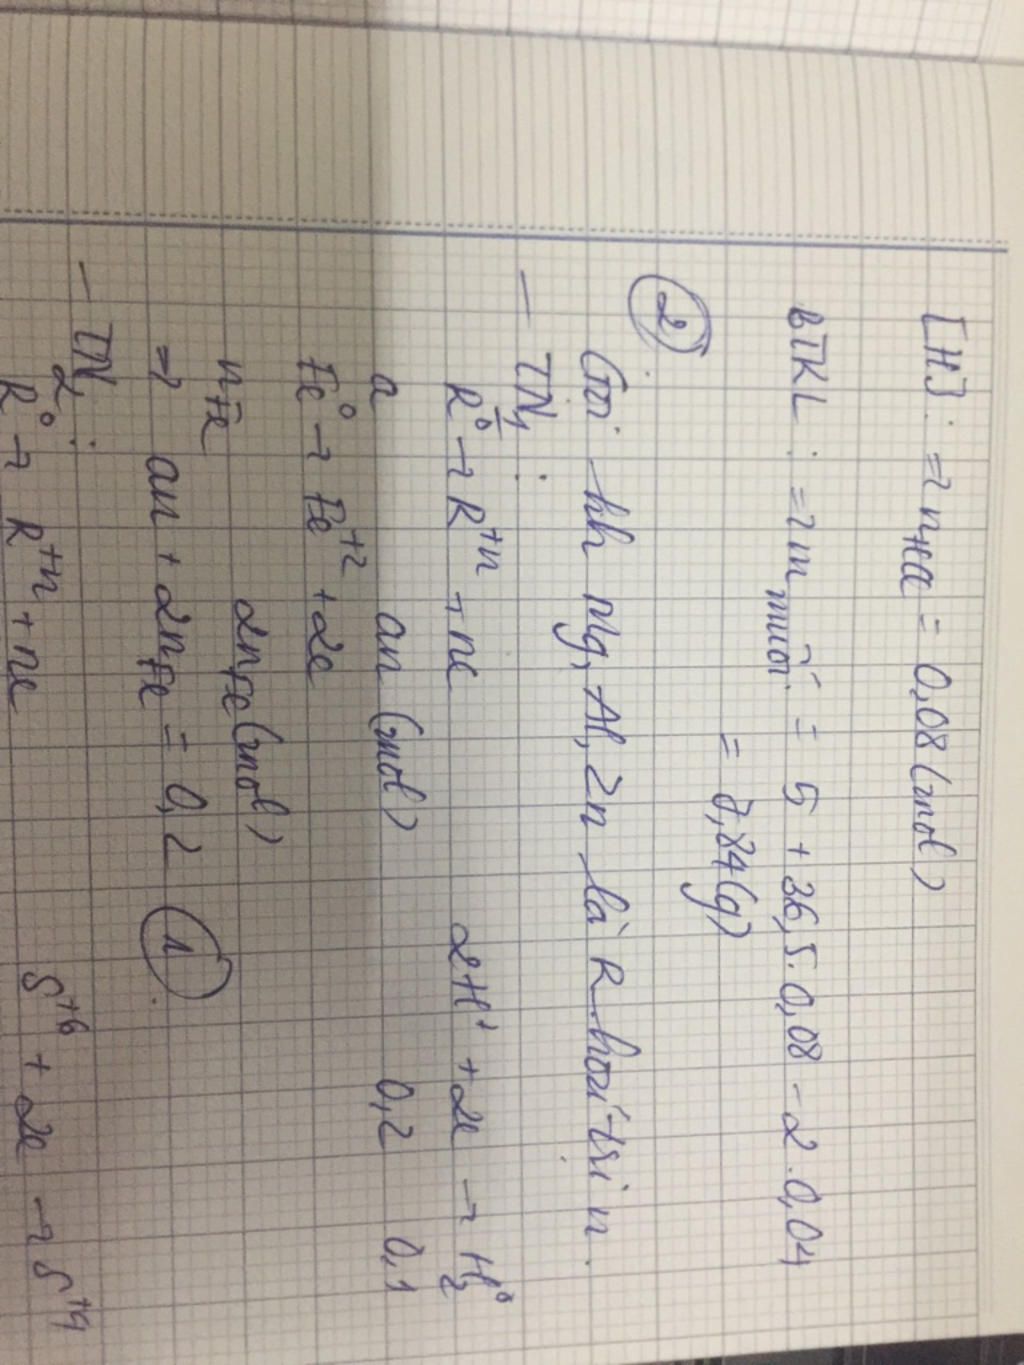 [H]: => nHCl = 0,08 (mol)
BTKL: => m muối = 5 + 36,5.0,08 - 2.0,04
= 7,84 (g)
②
Gọi hh Mg, Al, Zn là R hoá trị n.
- TN1:
R⁰ → R⁺ⁿ + ne 2H⁺ + 2e → H₂⁰
a an (mol) 0,2 0,1
Fe⁰ → Fe⁺² + 2e
nFe 2nFe (mol)
=> an + 2nFe = 0,2 ①
- TN2:
R⁰ → R⁺ⁿ + ne S⁺⁶ + 2e → S⁺⁴